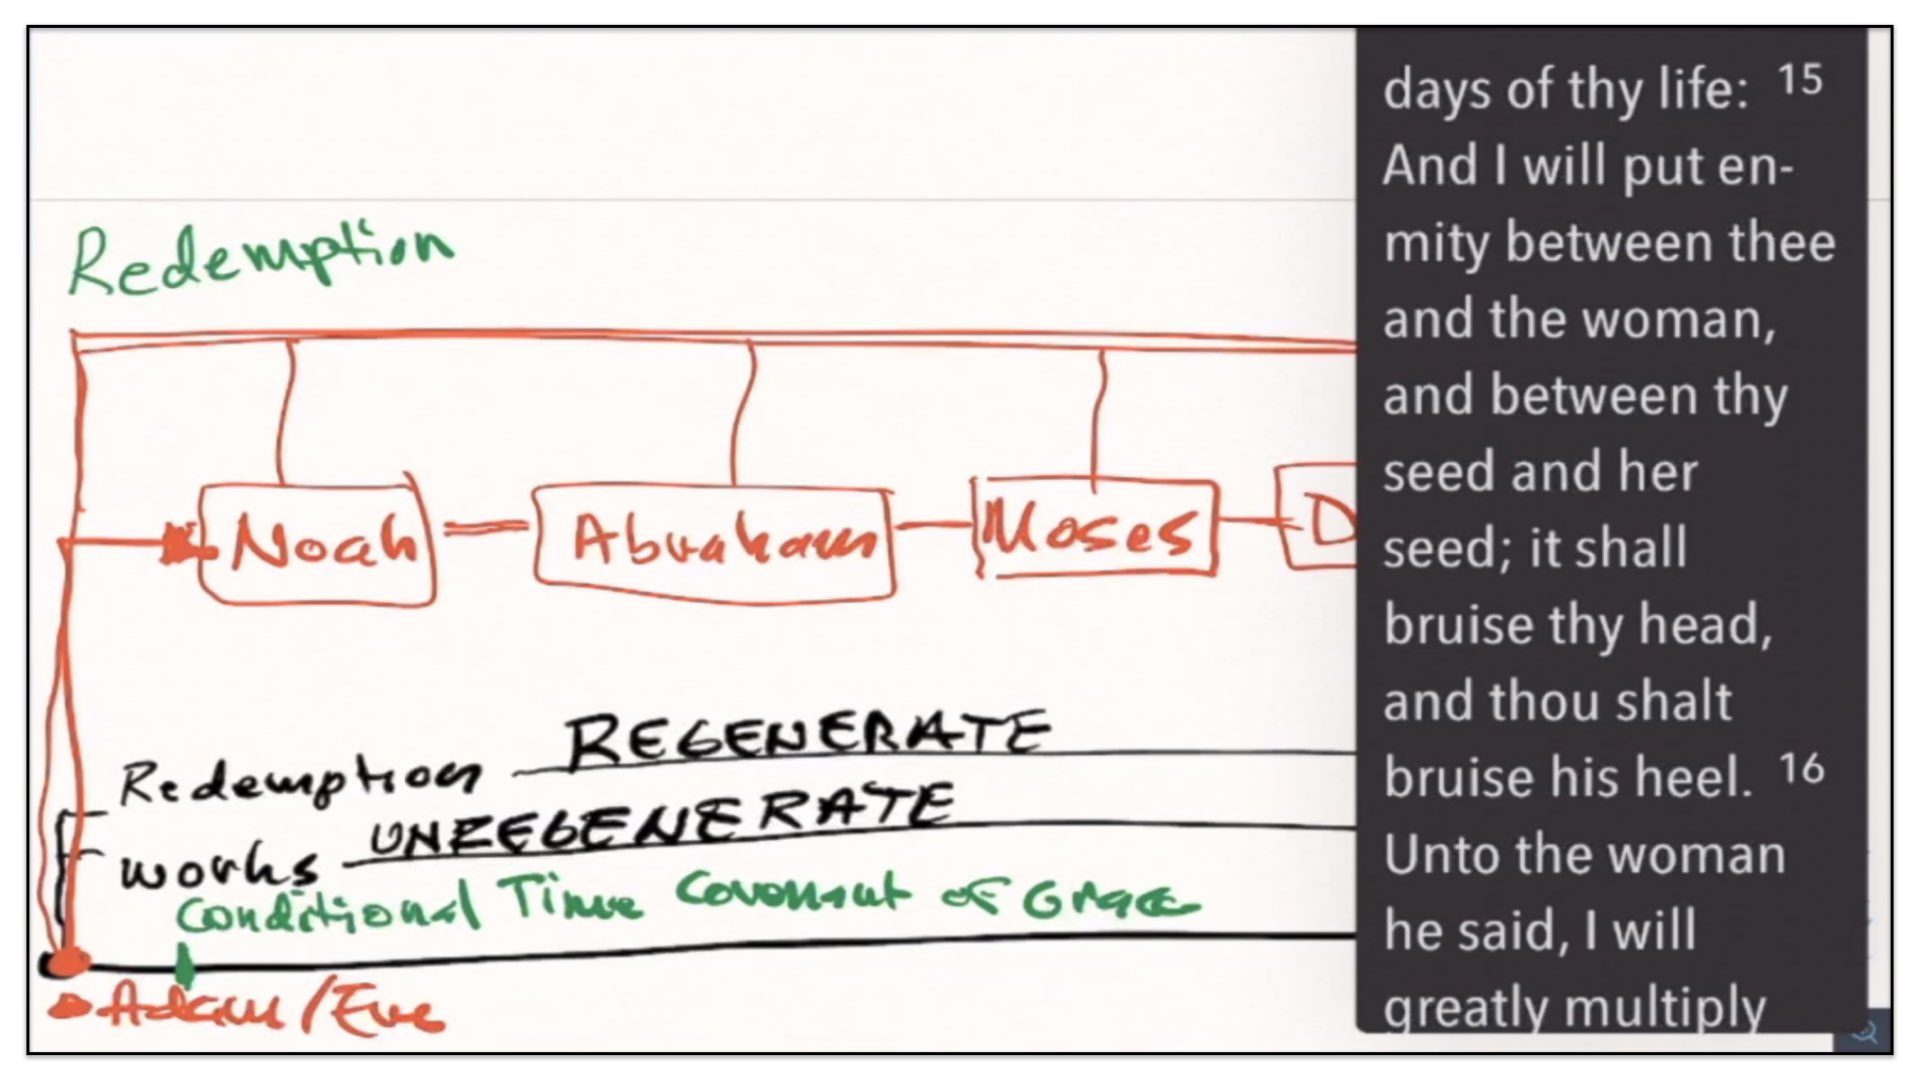 Redemption
Noah
Abraham
Moses
D
Redemption REGENERATE
works UNREGENERATE
Conditional Time Covenant of Grace
Adam/Eve
days of thy life: 15
And I will put en-
mity between thee
and the woman,
and between thy
seed and her
seed; it shall
bruise thy head,
and thou shalt
bruise his heel. 16
Unto the woman
he said, I will
greatly multiply